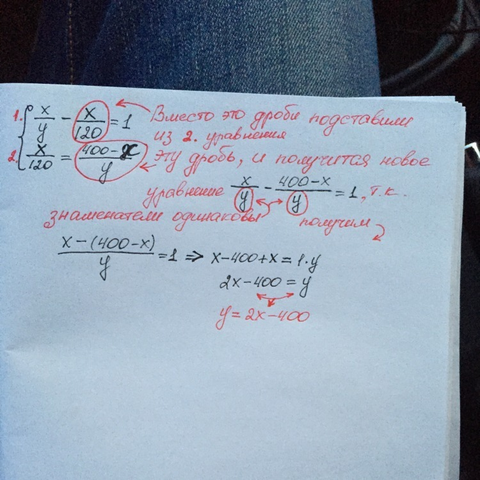 1. x/y - x/120 = 1 Вместо это дроби подставили
из 2. уравнения
2. x/120 = (400-x)/y Эту дробь, и получится новое
уравнение x/y - (400-x)/y = 1, т.к.
знаменатели одинаковы получим
(x-(400-x))/y = 1 => x-400+x=1·y
2x-400=y
y=2x-400